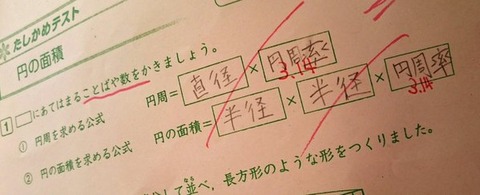 たしかめテスト
円の面積
1 □にあてはまることばや数をかきましょう。
① 円周を求める公式 円周=直径×円周率
3.14
② 円の面積を求める公式 円の面積=半径×半径×円周率
3.14
して並べ、長方形のような形をつくりました。
なら